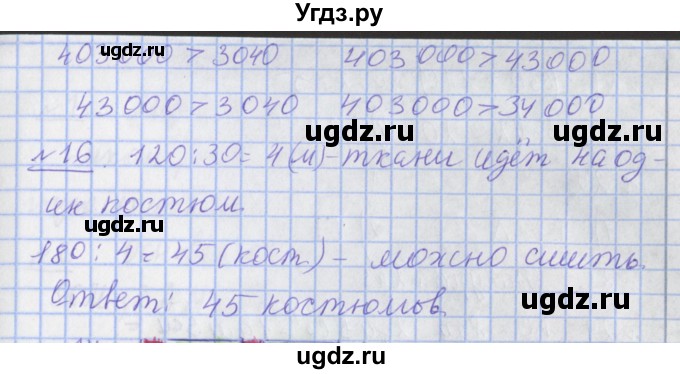 Угдз.ру
403000 > 3040 403000 > 43000
ugdz.ru ugdz.ru
43000 > 3040 403000 > 34000
ugdz.ru
№16. 120:30=4(м)-ткани идёт на од-
ин костюм.
ugdz.ru ugdz.ru
180:4=45(кост.)- можно сшить.
Ответ: 45 костюмов.
ugdz.ru ugdz.ru
ugdz.ru